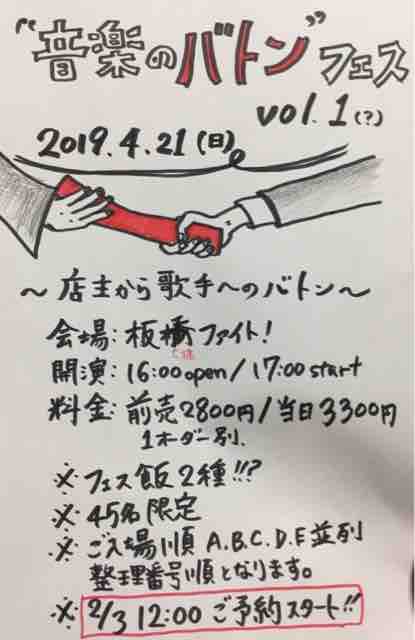 "音楽のバトン"フェス
vol.1(?)
2019.4.21(日)
~店主から歌手へのバトン~
会場:板橋ファイト!
開演:16:00open/17:00start
料金:前売2800円/当日3300円
1オーダー別.
※フェス飯2種!!?
※45名限定
※ご入場順 A.B.C.D.E並列
整理番号順となります。
※2/3 12:00 ご予約スタート!!